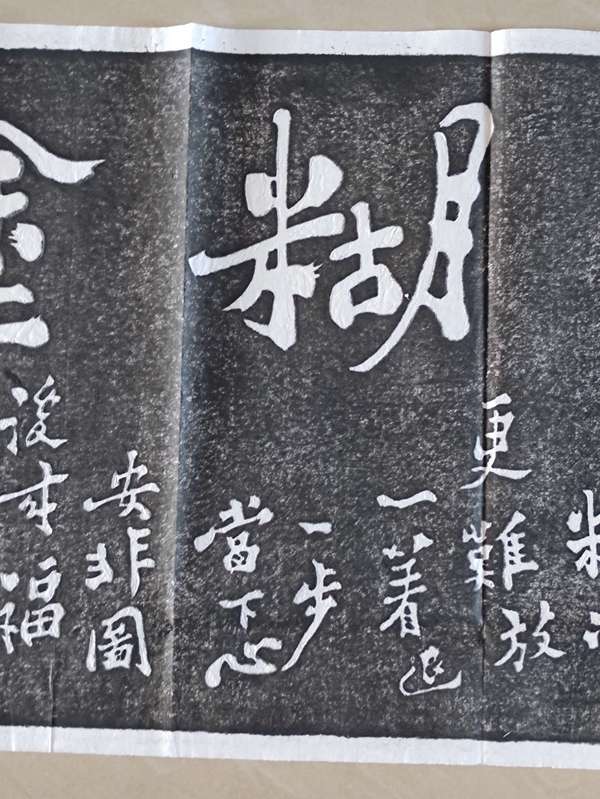 糊
更難放
一着退
一步
當下心
安非圖
後来福